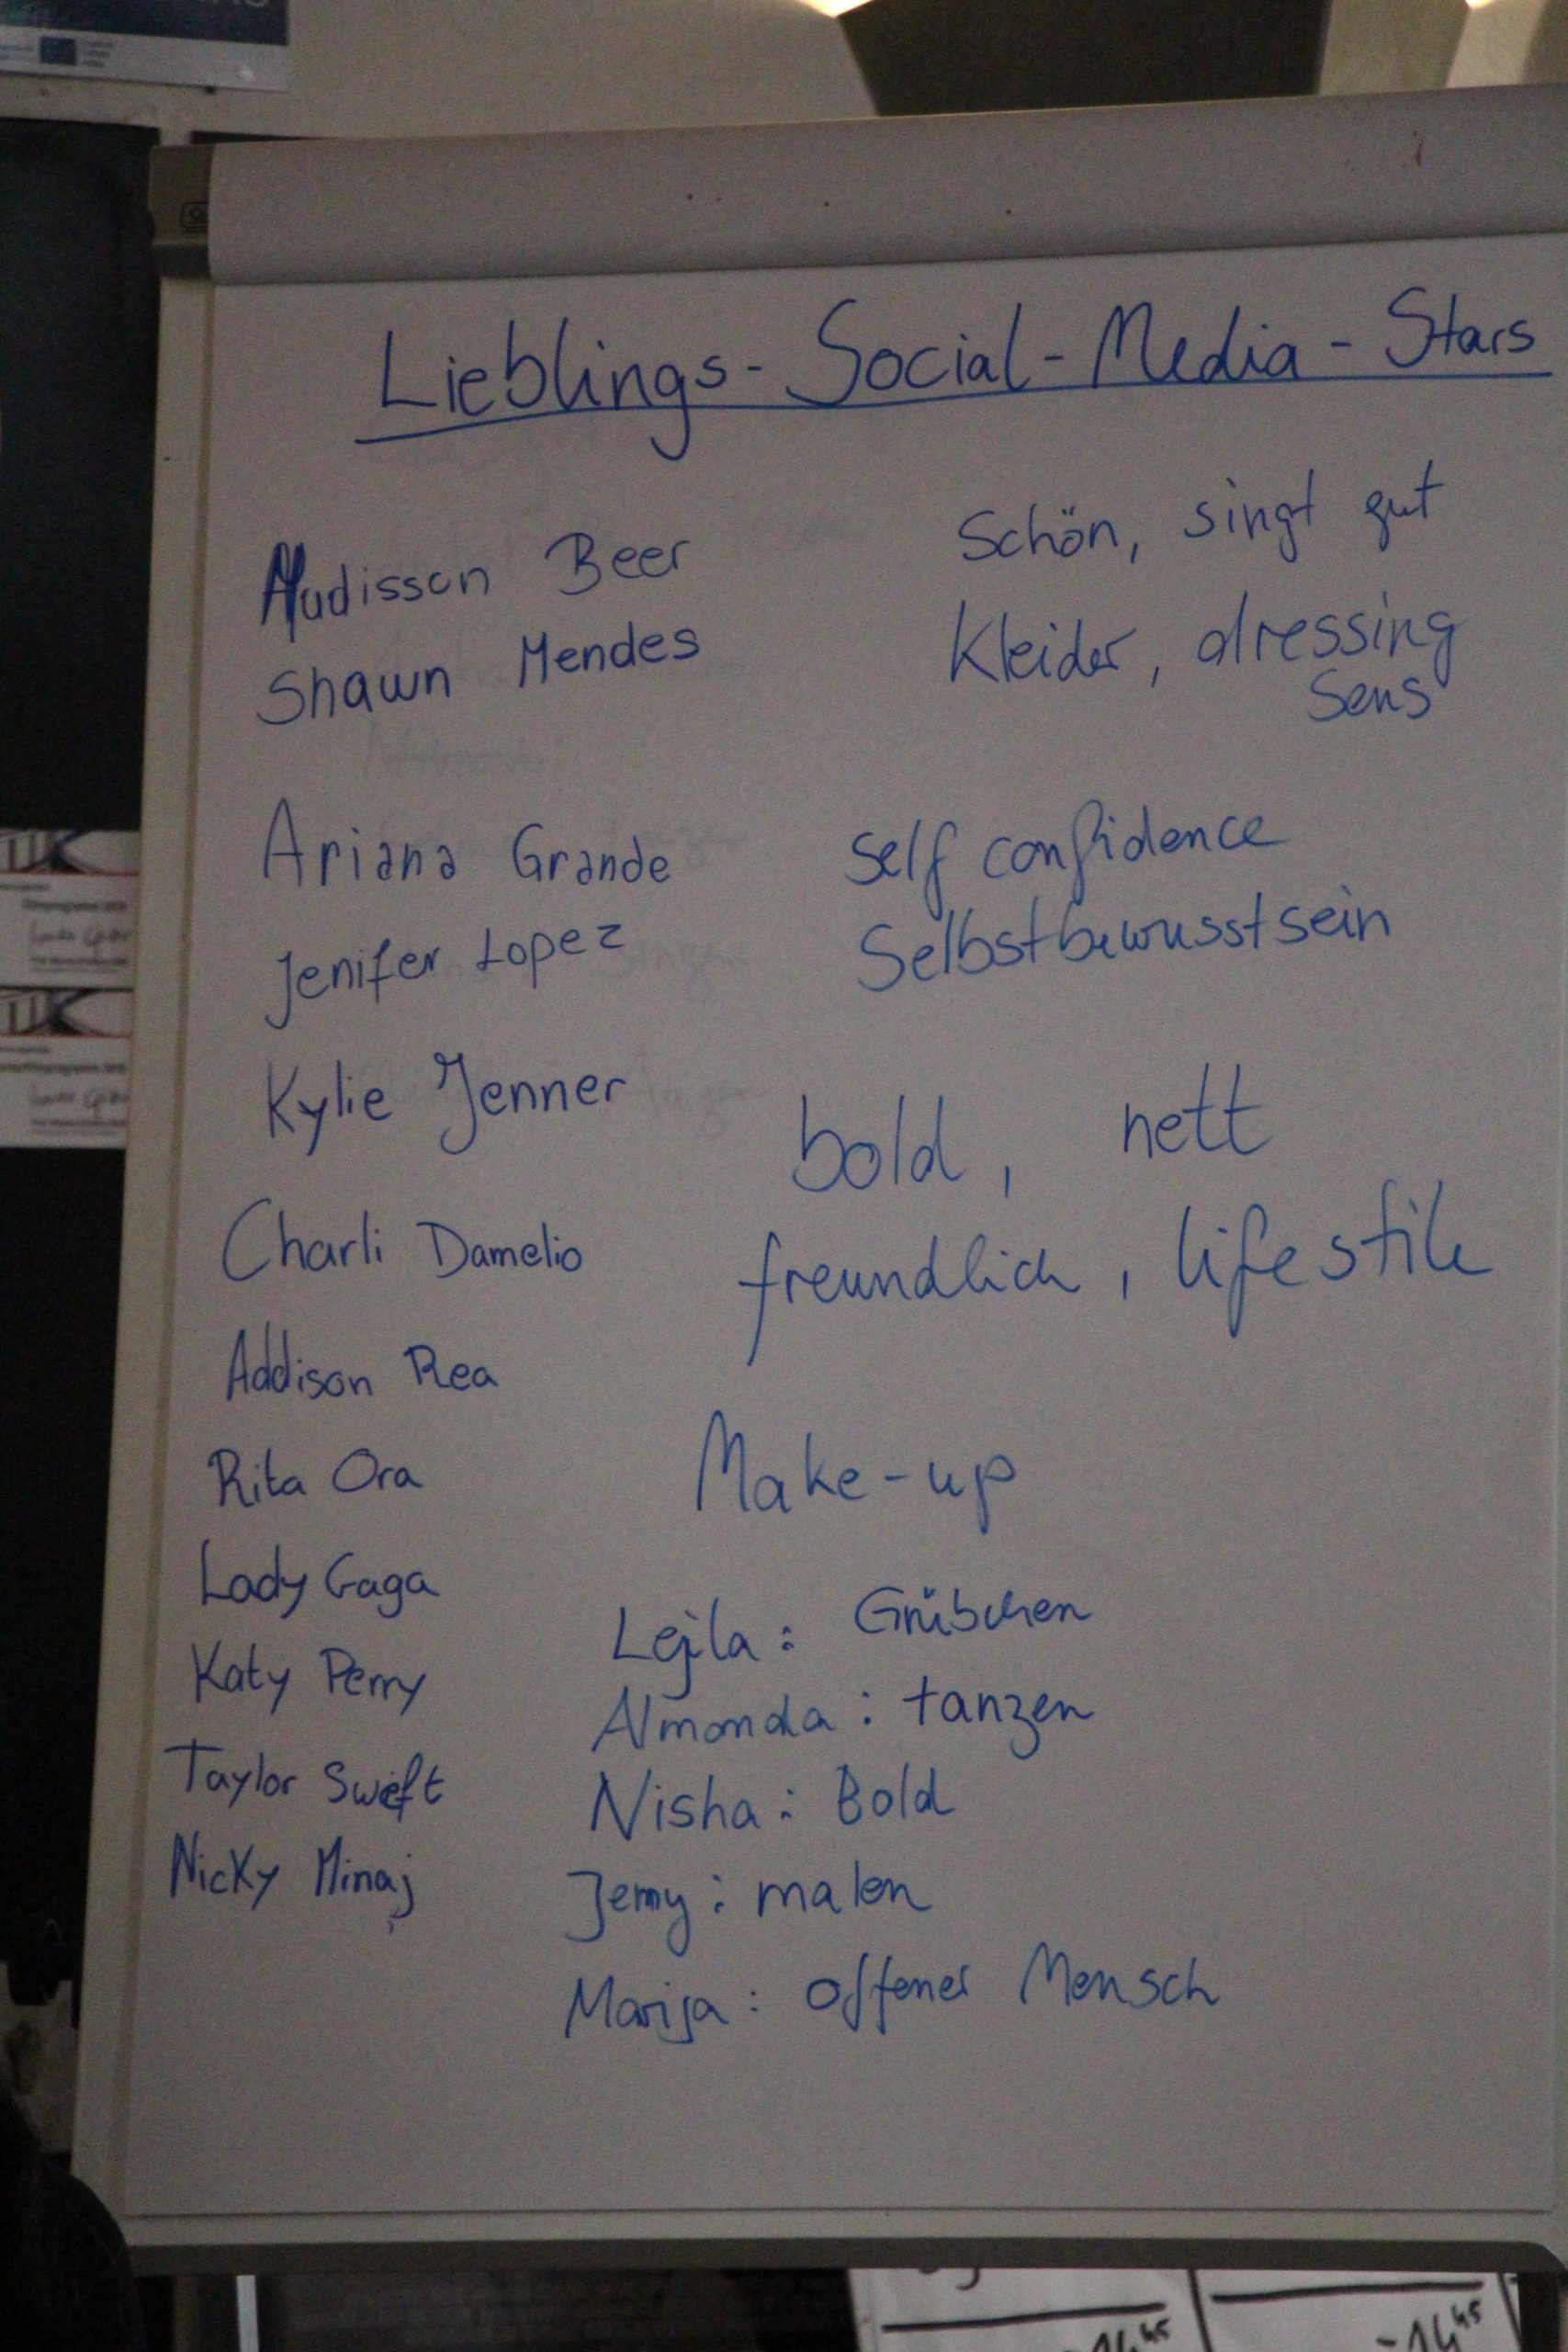 Lieblings-Social-Media-Stars
Madisson Beer
Shawn Mendes
Ariana Grande
Jenifer Lopez
Kylie Jenner
Charli Damelio
Addison Rea
Rita Ora
Lady Gaga
Katy Perry
Taylor Swift
Nicky Minaj
Schön, singt gut
Kleider, dressing
Sens
Self confidence
Selbstbewusstsein
bold, nett
freundlich, lifestile
Make-up
Lejla: Grübchen
Almonda: tanzen
Nisha: Bold
Jemy: malen
Marija: offener Mensch
-14 45